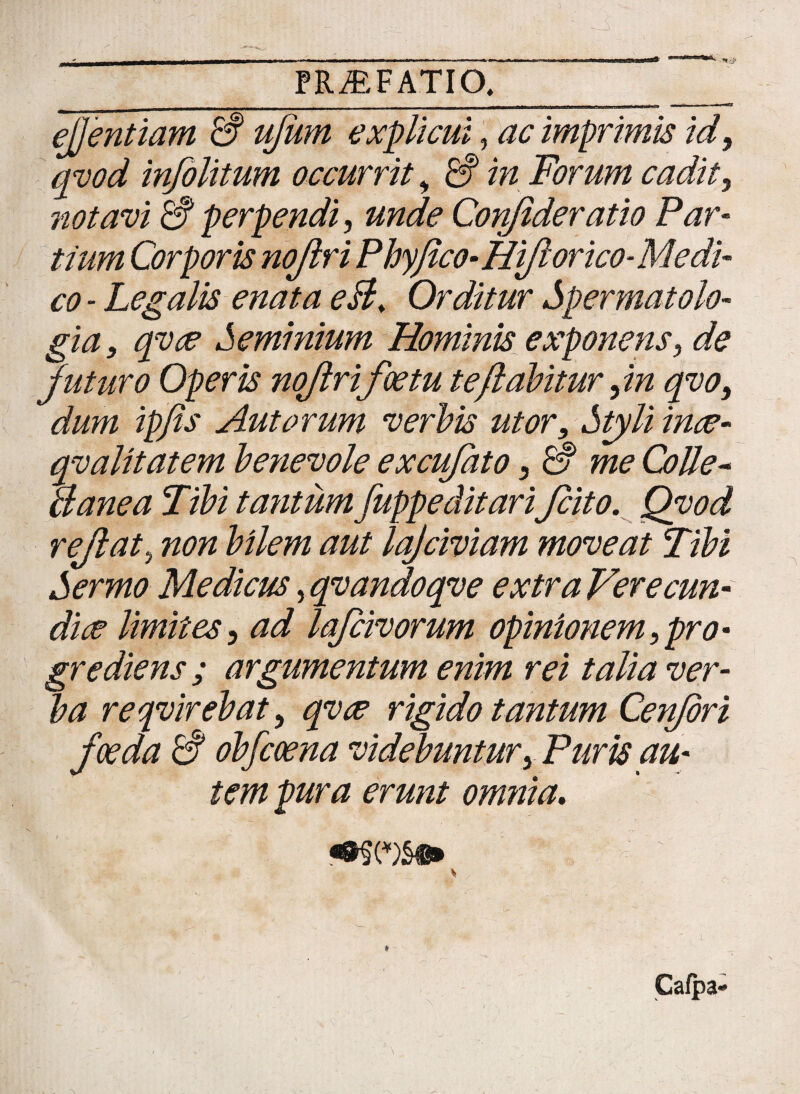 PRÆFATIO.
eſſentiam & uſum explicui, ac imprimis id,
qvod inſolitum occurrit, & in Forum cadit,
notavi & perpendi, unde Conſideratio Par-
tium Corporis noſtri Phyſico-Hiſtorico-Medi-
co-Legalis enata eſt. Orditur Spermatolo-
gia, qvæ Seminium Hominis exponens, de
futuro Operis noſtri fœtu teſtabitur, in qvo,
dum ipſis Autorum verbis utor, Styli inæ-
qvalitatem benevole excuſato, & me Colle-
ctanea Tibi tantùm ſuppeditari ſcito. Qvod
reſtat, non bilem aut laſciviam moveat Tibi
Sermo Medicus, qvandoqve extra Verecun-
diæ limites, ad laſcivorum opinionem, pro-
grediens; argumentum enim rei talia ver-
ba reqvirebat, qvæ rigido tantum Cenſori
fœda & obſcœna videbuntur, Puris au-
tem pura erunt omnia.
§(*)§
Caſpa-